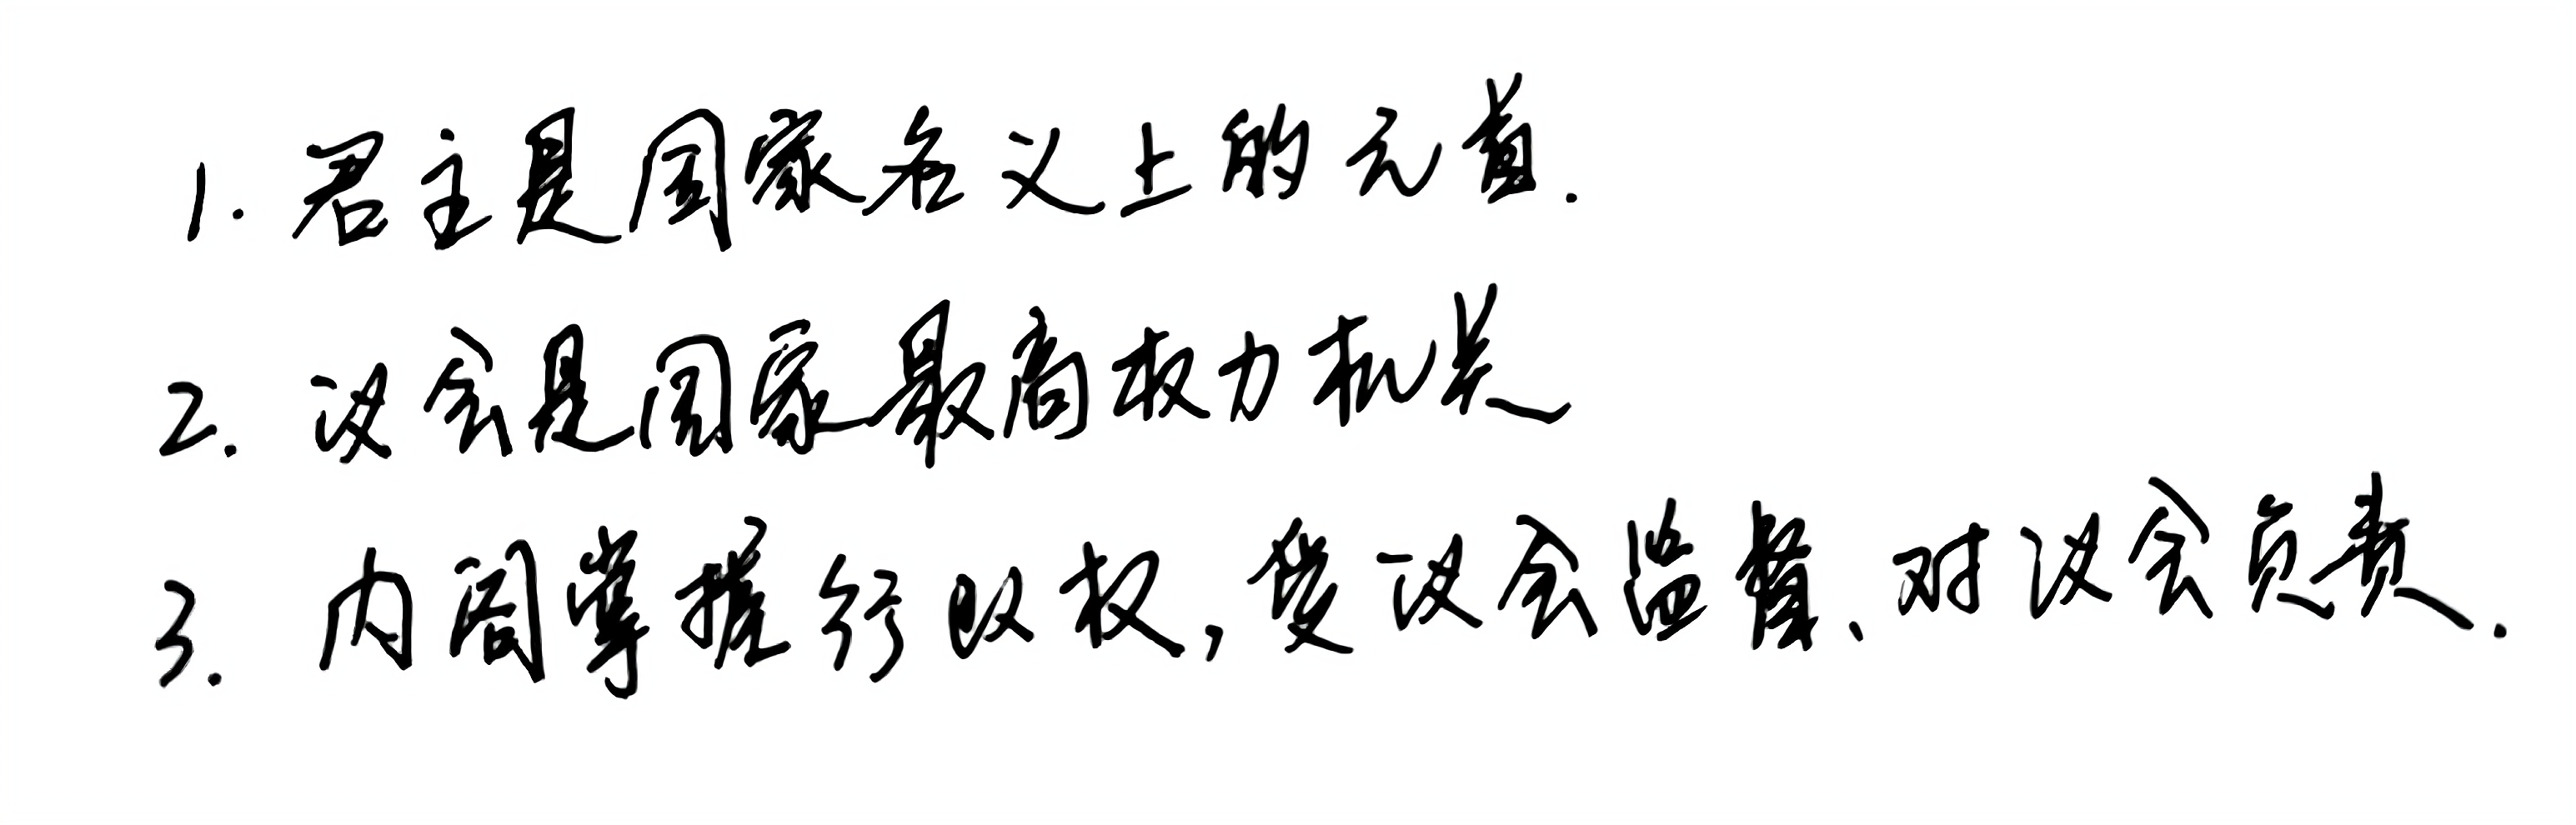 1. 君主是国家名义上的元首.
2. 议会是国家最高权力机关
3. 内阁掌握行政权,受议会监督、对议会负责.